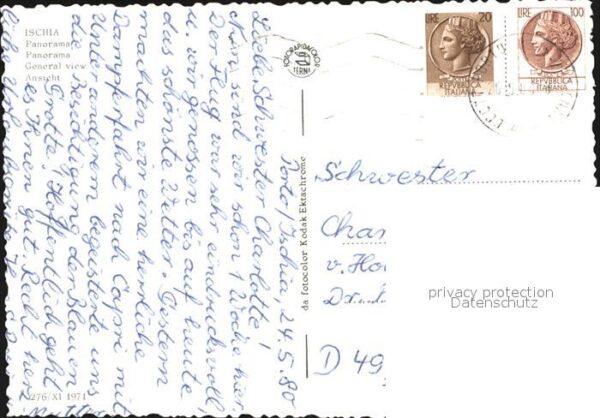 ISCHIA
Panorama
Panorama
General view
Ansicht
FOTORAPIDACOLOR
TERNI
LIRE 20
REPVBBLICA
ITALIANA
LIRE 100
REPVBBLICA
ITALIANA
Porto/Ischia, 24.5.80
Liebe Schwester Charlotte!
Nun sind wir schon 1 Woche hier
Der Flug war sehr eindrucksvoll
u. wir genossen bis auf heute
das schönste Wetter. Gestern
machten wir eine herrliche
Dampferfahrt nach Capri mit
Unter anderem begeisterte uns
die Besichtigung der Blauen
Grotte. Hoffentlich geht
es Ihnen gut. Recht herz
da fotocolor Kodak Ektachrome
Schwester
Char
v. Ho
D 49
privacy protection
Datenschutz
276/XI 1971